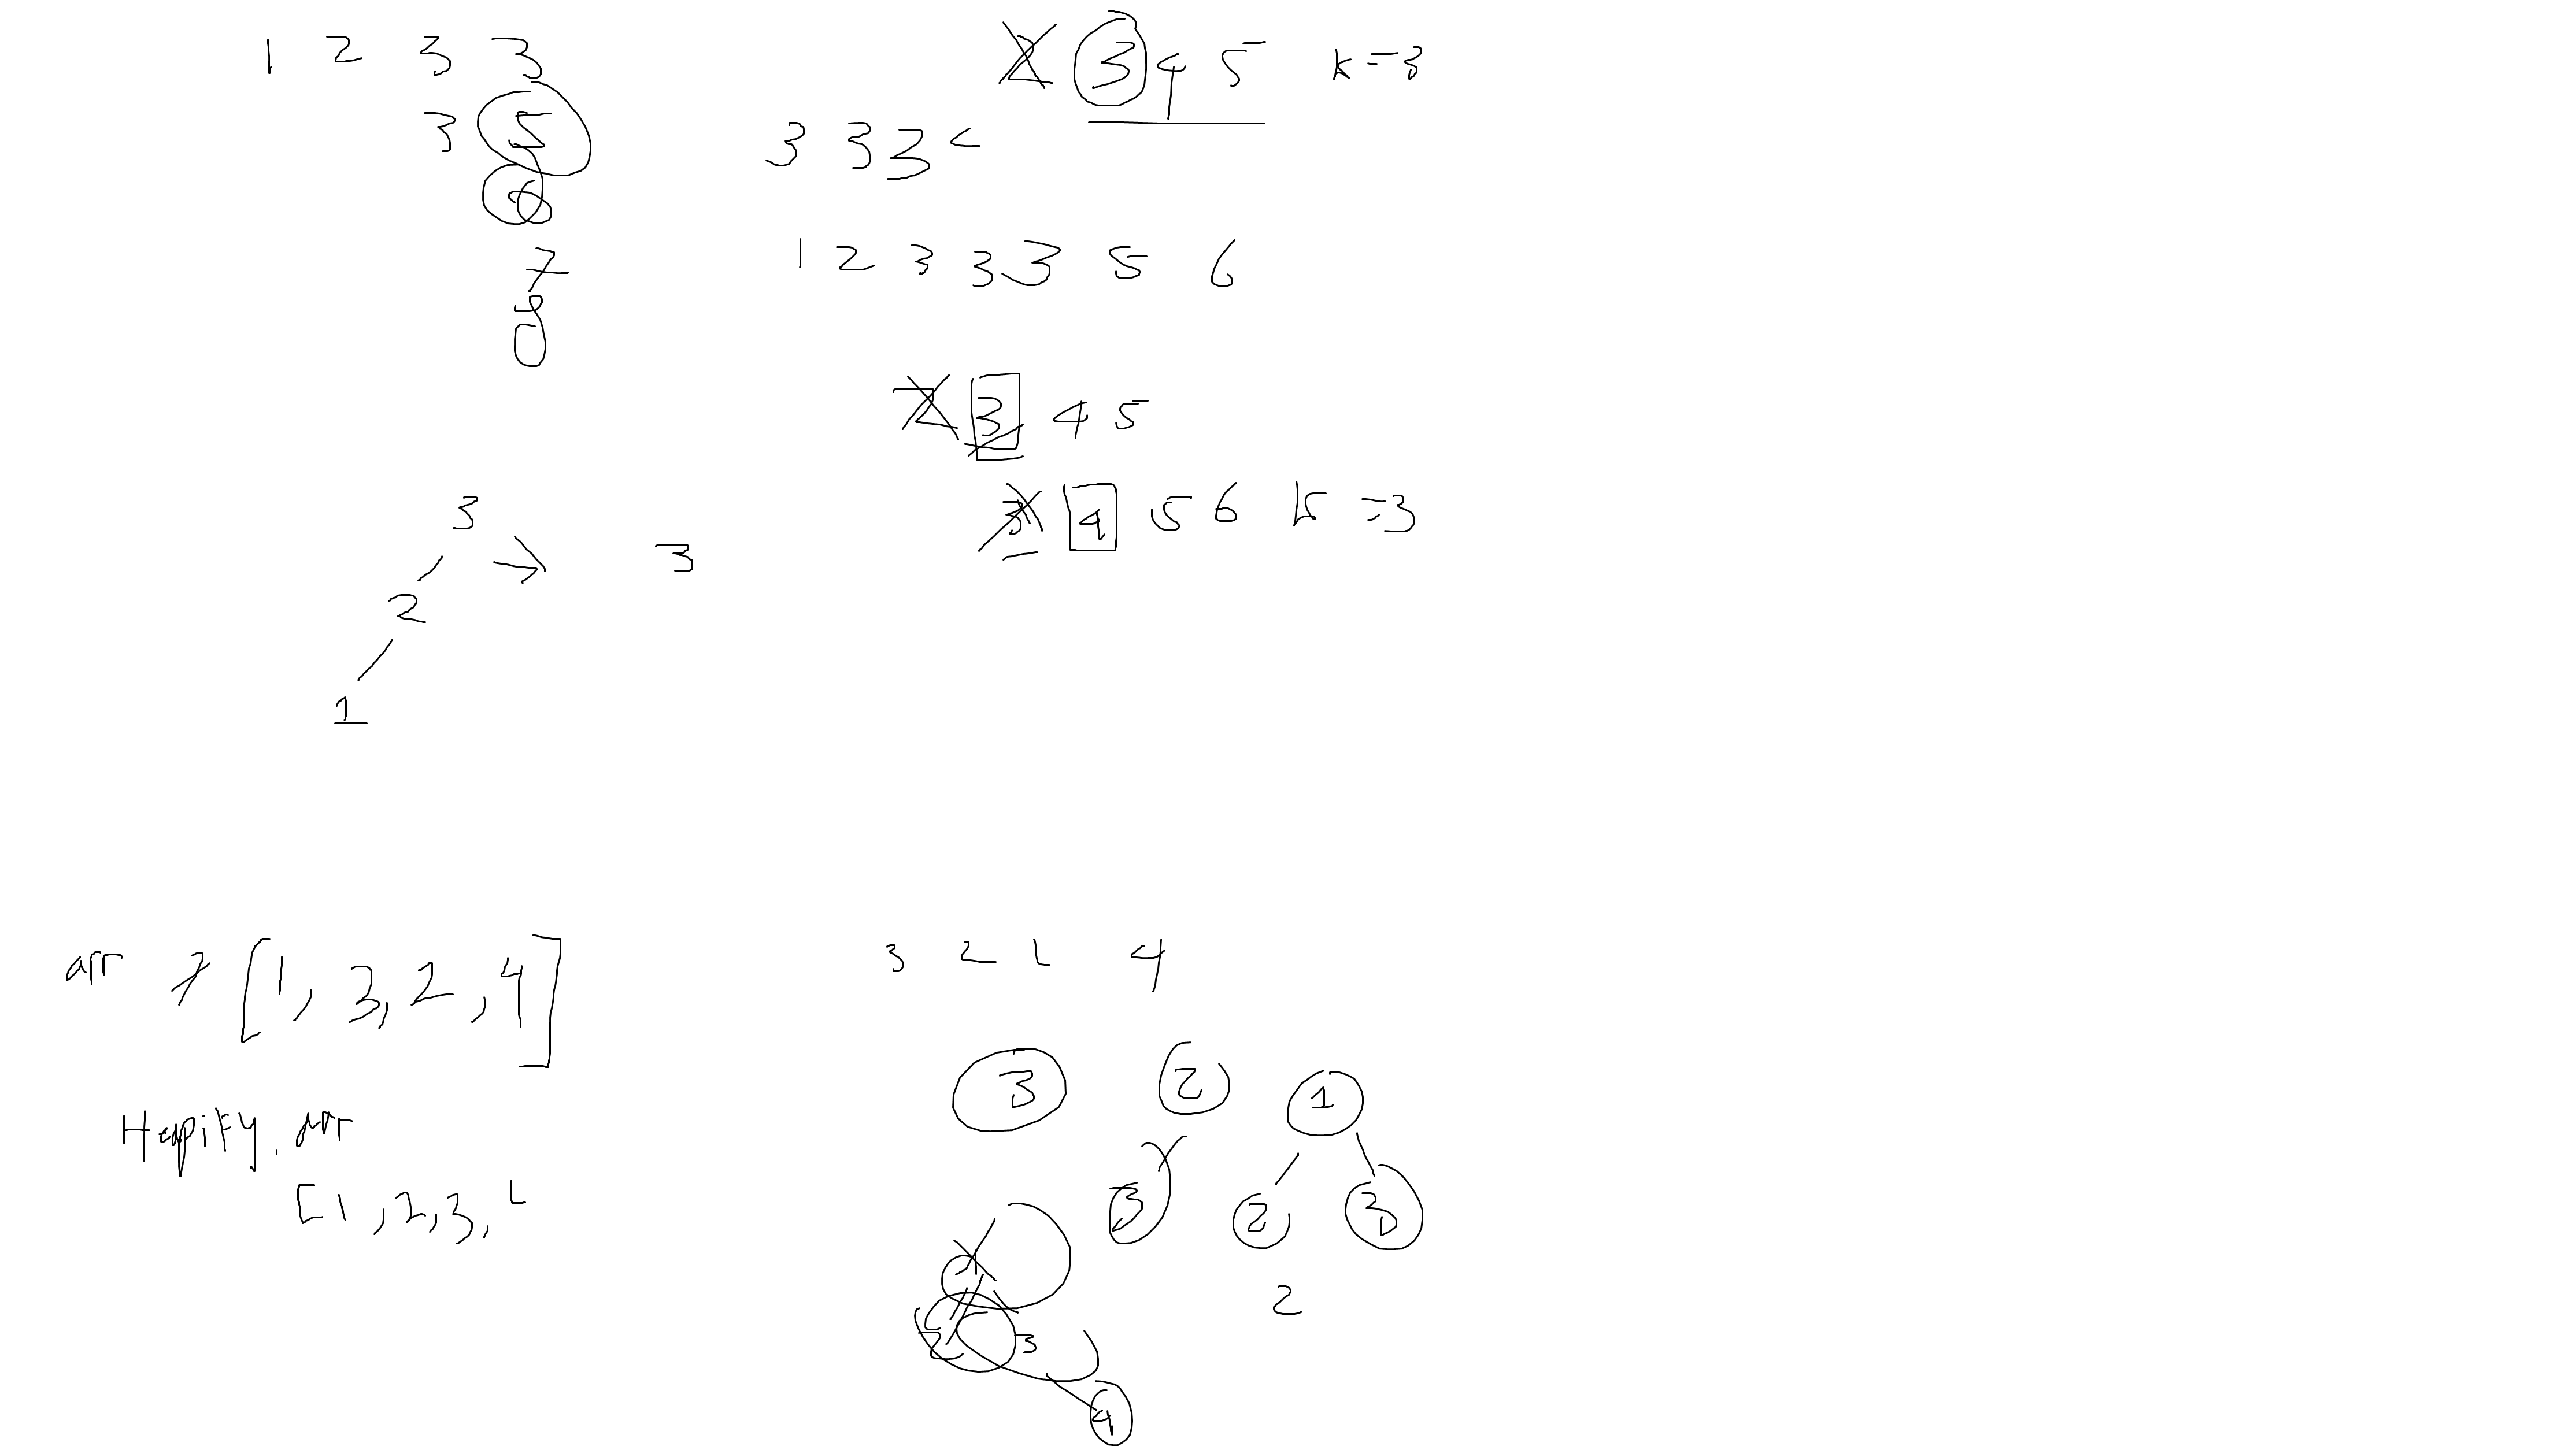 1 2 3 3
3 5
6
7
8
2 3 4 5 k=3
3 3 3
1 2 3 3 3 5 6
2 3 4 5
3 4 5 6 k=3
3
2
1
3
arr [1, 3, 2, 4]
Heapify.arr
[1, 2, 3,
3 2 1 4
3 2 1
3 2 3
2
2 3
4